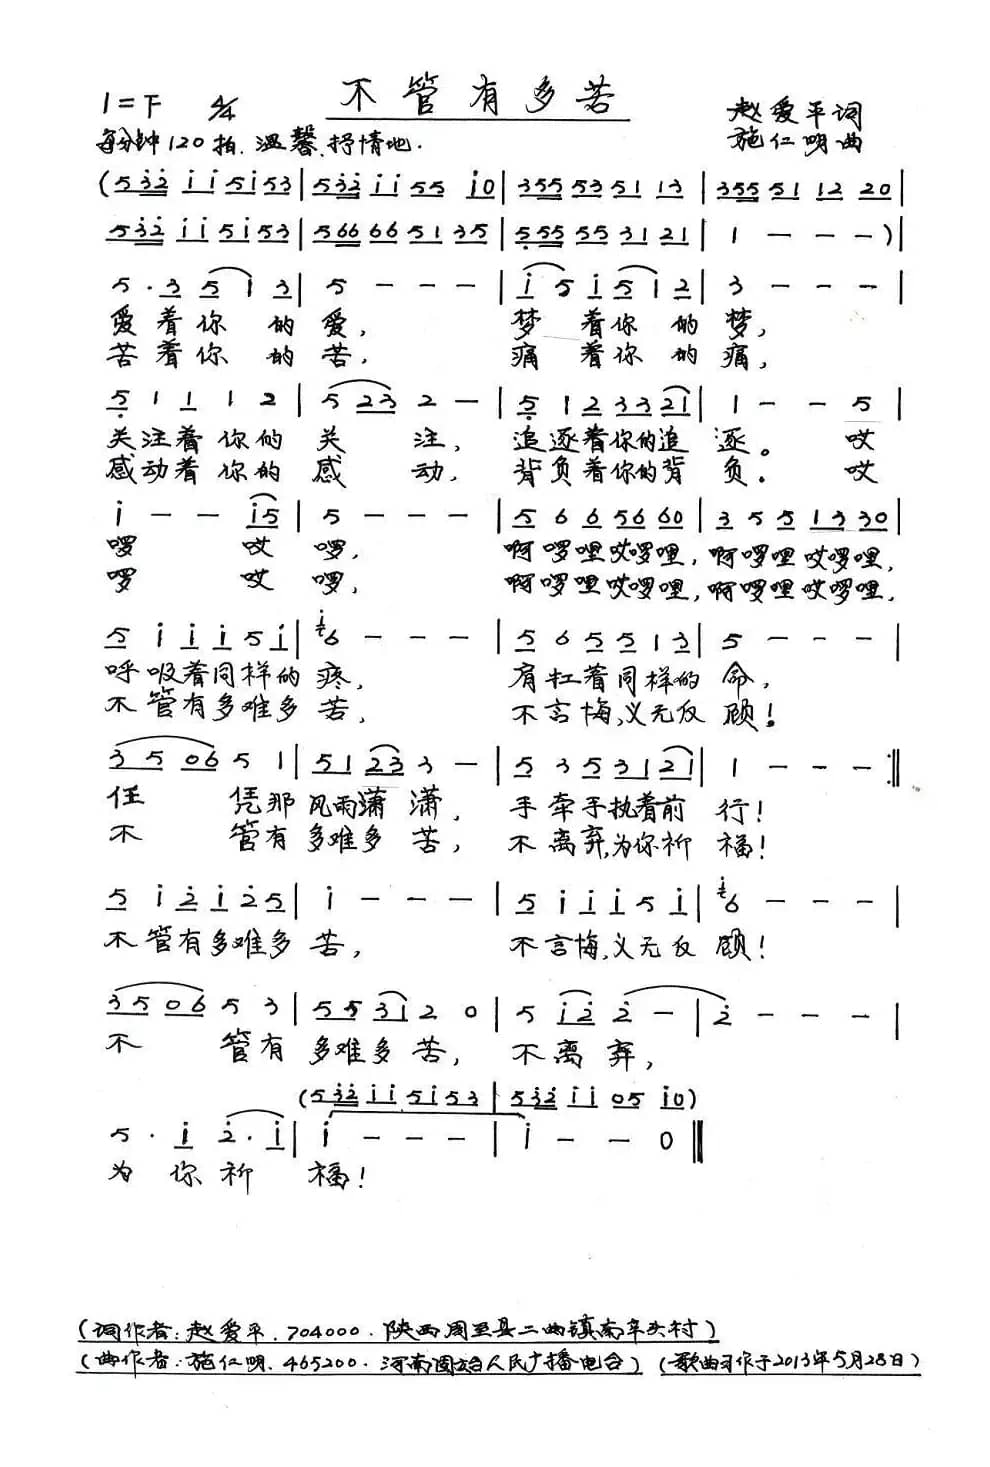 不管有多苦
1=F 4/4
赵爱平词
每分钟120拍.温馨.抒情地.
施仁明曲
(532 11 5153|532 11 55 10|355 53 51 13|355 51 12 20|
532 11 5153|566 66 51 35|555 55 31 21|1 - - -)|
5 · 3 5 1 3|5 - - -|1 5 1 5 1 2|3 - - -|
爱着你的爱,梦着你的梦,
苦着你的苦,痛着你的痛,
5 1 1 1 2|5 23 2 -|5 1 2 33 21|1 - - 5|
关注着你的关注,追逐着你的追逐。哎
感动着你的感动,背负着你的背负。哎
1 - - 15|5 - - -|5 6 6 56 60|3 5 5 13 30|
啰哎啰,啊啰哩哎啰哩,啊啰哩哎啰哩,
啰哎啰,啊啰哩哎啰哩,啊啰哩哎啰哩,
5 1 1 1 5 1|6 - - -|5 6 5 5 1 3|5 - - -|
呼吸着同样的疼,肩扛着同样的命,
不管有多难多苦,不言悔,义无反顾!
35 06 5 1|51 23 3 -|5 3 5 31 21|1 - - -:||
任凭那风雨潇潇,手牵手执着前行!
不管有多难多苦,不离弃,为你祈福!
5 1 2 1 2 5|1 - - -|5 1 1 1 5 1|6 - - -|
不管有多难多苦,不言悔,义无反顾!
35 06 5 3|55 31 2 0|5 12 2 -|2 - - -|
不管有多难多苦,不离弃,
(532 11 51 53|532 11 05 10)
5 · 1 2 · 1|1 - - -|1 - - 0||
为你祈福!
(词作者:赵爱平.704000.陕西周至县二曲镇南辛头村)
(曲作者:施仁明.465200.河南固始人民广播电台)(歌曲习作于2013年5月28日)